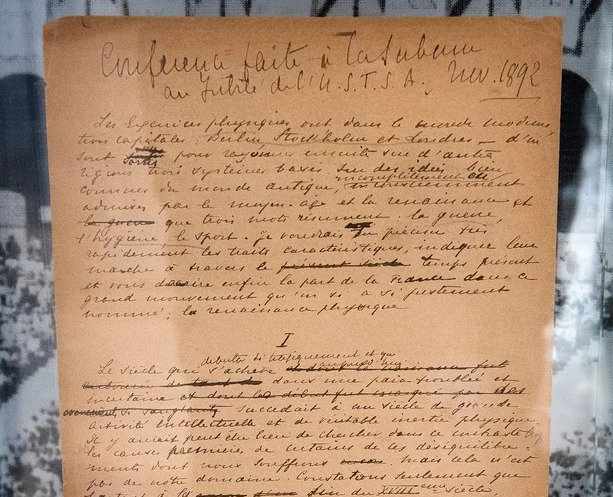 Conférence faite à la Sorbonne
au Jubilé de l'U.S.F.S.A. Nov. 1892
Les Exercices physiques ont dans le monde moderne
trois capitales : Berlin, Stockholm et Londres – d'où
sont sortis pour rayonner ensuite sur d'autres
régions trois systèmes basés sur des idées bien
connues du monde antique, incomplètement ou inconsciemment
admises par le moyen-age et la renaissance et
la guerre que trois mots résument : la guerre,
l'hygiène, le sport. je voudrais en préciser très
rapidement les traits caractéristiques, indiquer leur
marche à travers le présent siècle temps présent
et vous dire enfin la part de la France dans ce
grand mouvement qu'on a si justement
nommé : la renaissance physique
I
débuta si tragiquement et qui
Le siècle qui s'achève
dans une paix troublée et
incertaine et dont les début fut marqué par des
évènements si sanglants succédait à un siècle de grande
activité intellectuelle et de véritable inertie physique.
Il y aurait peut être lieu de chercher dans ce contraste
les causes premières de certains de ces déséquilibre-
ments dont nous souffrons mais cela n'est
pas de notre domaine. Constatons seulement que
fin du siècle,